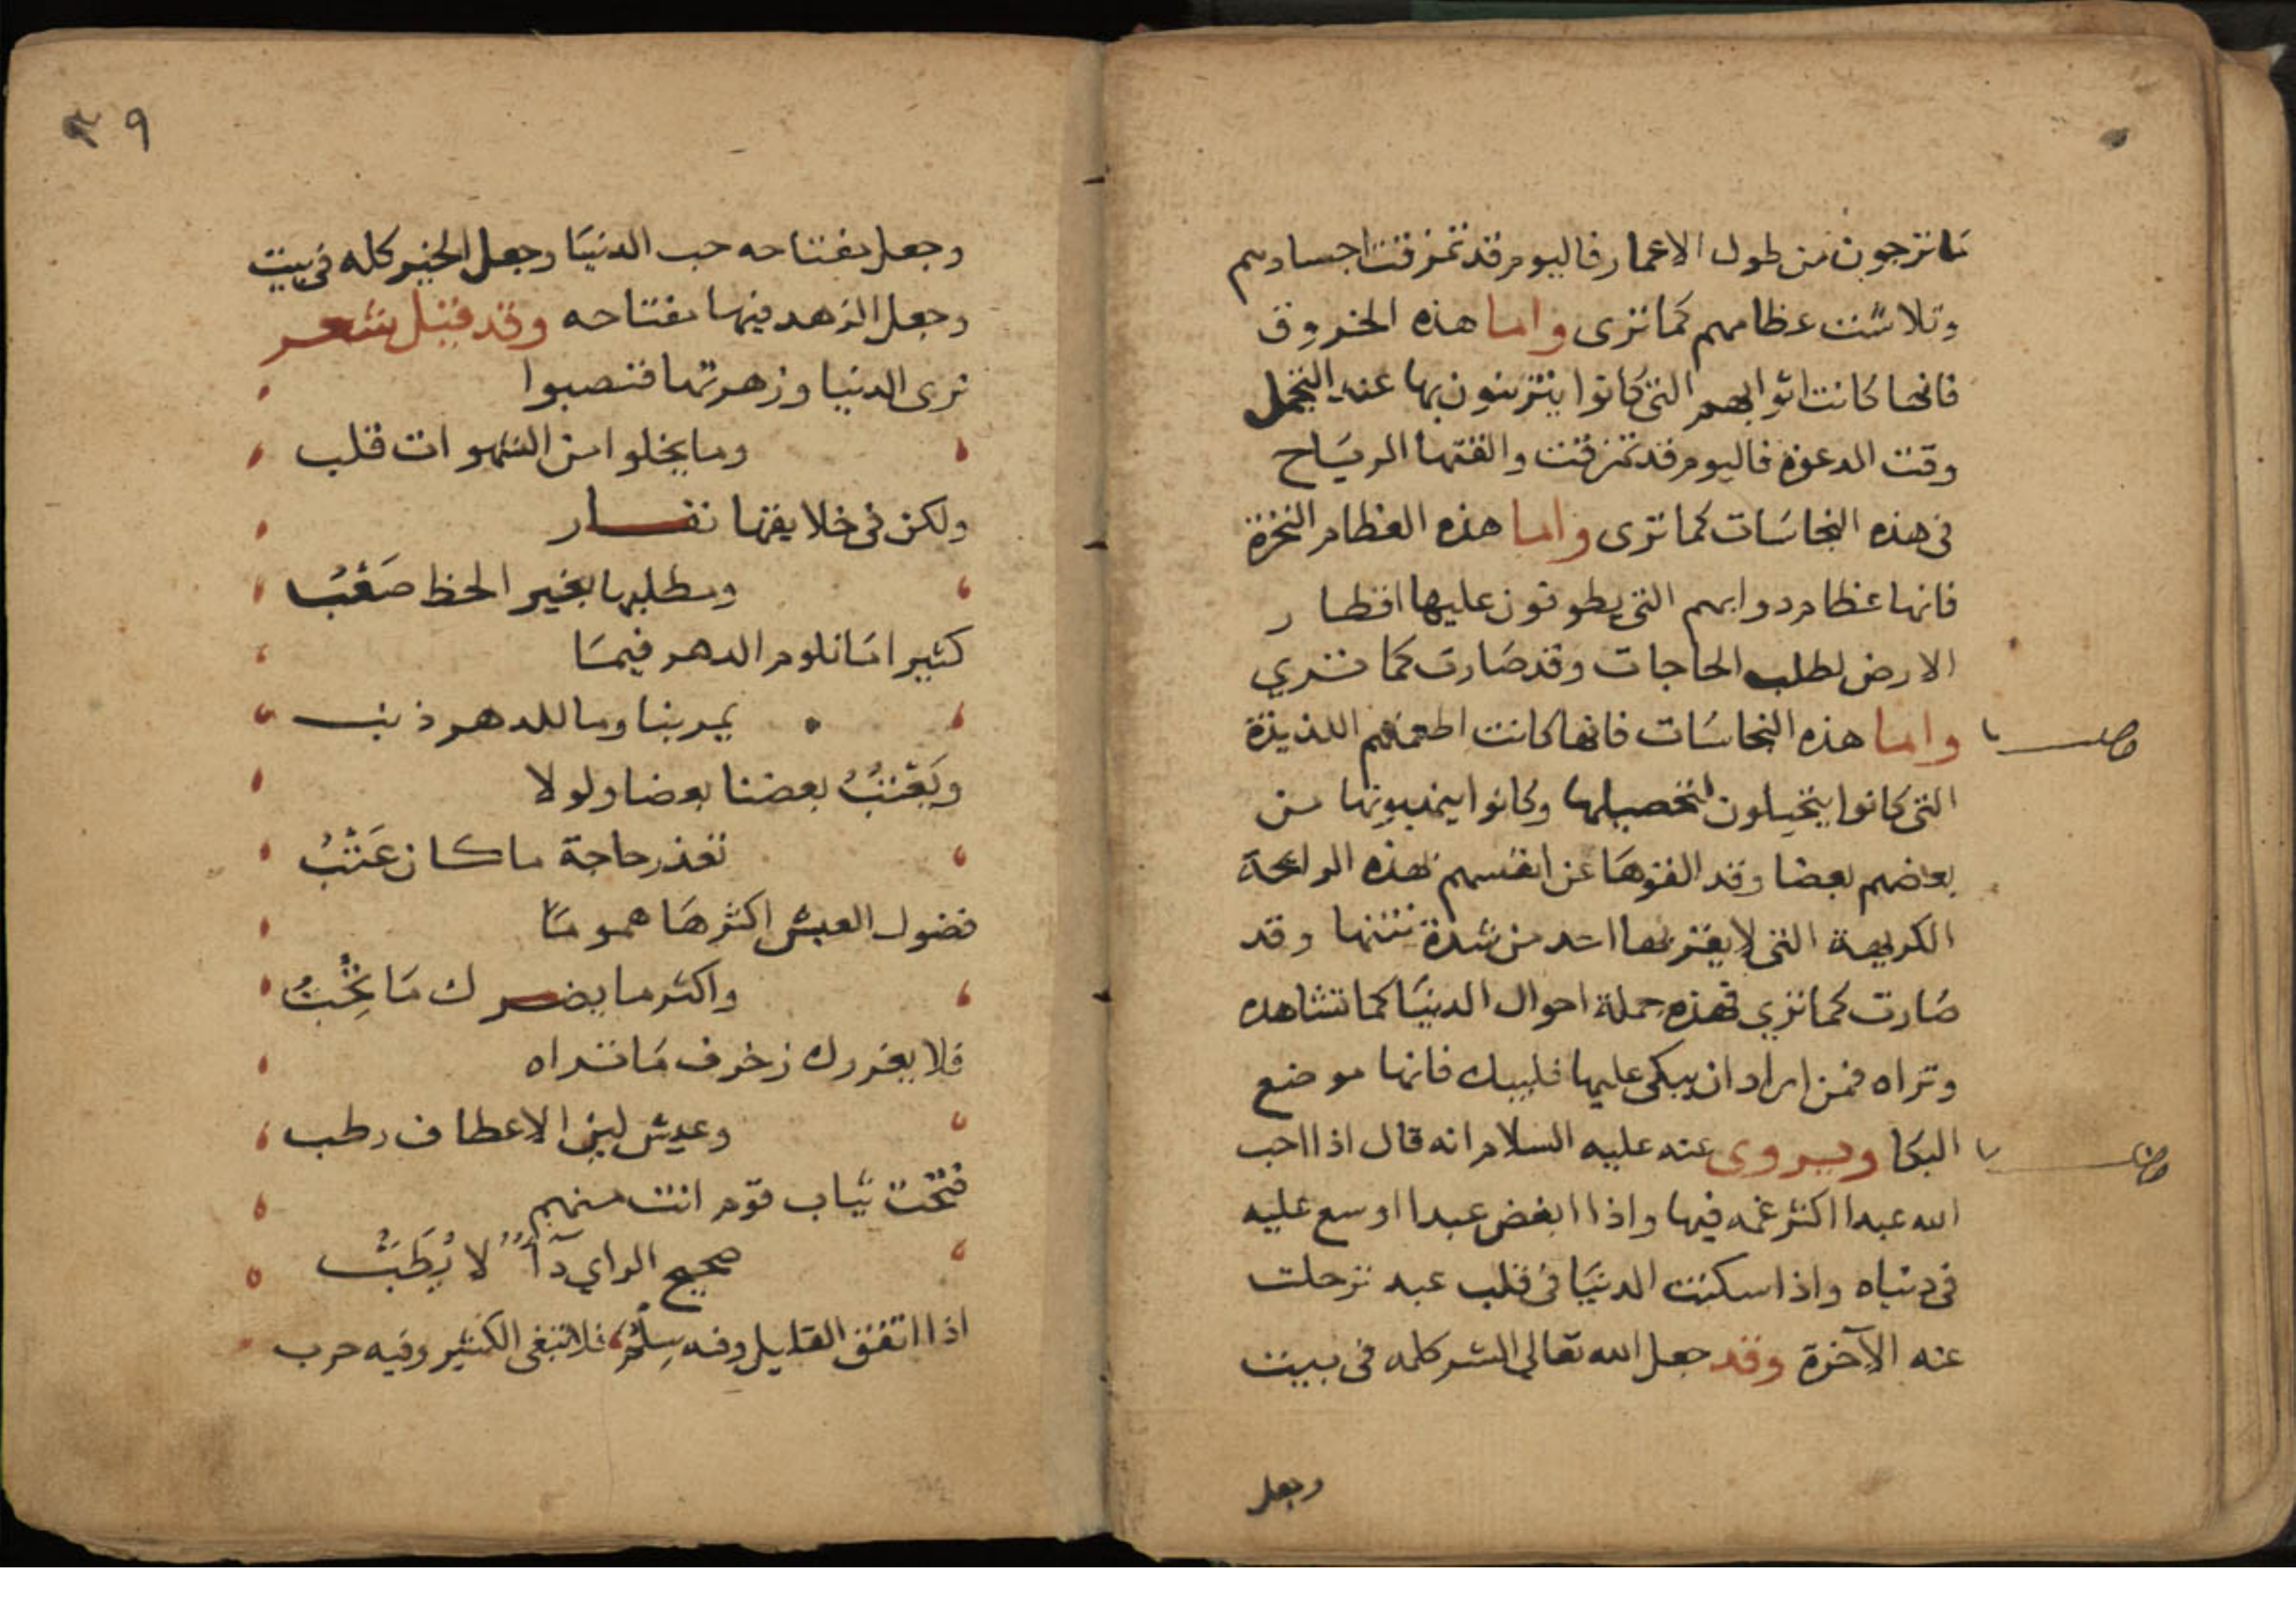 ما ترجون من طول الاعمار فاليوم قد تمزقت اجسادهم
وتلاشت عظامهم كما ترى واما هذه الخروق
فانها كانت اثوابهم التى كانوا يتزينون بها عند التجمل
وقت الدعوة فاليوم قد تمزقت والقتها الرياح
فى هذه النجاسات كما ترى واما هذه العظام النخرة
فانها عظام دوابهم التى يطوفون عليها اقطار
الارض لطلب الحاجات وقد صارت كما تري
واما هذه النجاسات فانها كانت اطعمتهم اللذيذة
التى كانوا يتحيلون لتحصيلها وكانوا ينهبونها من
بعضهم بعضا وقد القوها عن انفسهم بهذه الرائحة
الكريهة التى لا يقربها احد من شدة نتنها وقد
صارت كما تري فهذه جملة احوال الدنيا كما تشاهده
وتراه فمن اراد ان يبكى عليها فليبك فانها موضع
البكا ويروى عنه عليه السلام انه قال اذا احب
الله عبدا اكثر غمه فيها واذا ابغض عبدا اوسع عليه
فى دنياه واذا سكنت الدنيا فى قلب عبد ترحلت
عنه الآخرة وقد جعل الله تعالى الشر كله فى بيت
وجعل
٣٩
وجعل مفتاحه حب الدنيا وجعل الخير كله فى بيت
وجعل الزهد فيها مفتاحه وقد قيل شعر
نرى الدنيا وزهرتها فنصبوا
وما يخلوا من الشهوات قلب
ولكن فى خلايقها نفار
ومطلبها بغير الحظ صَعْبُ
كثيرا مَا نلوم الدهر فيمَا
يمر بنا وما للدهر ذنب
ويَعْتبُ بعضنا بعضا ولولا
تعذر حاجة ما كان عَتْبُ
فضول العيش اكثرهَا همومًا
واكثر ما يضرك مَا تحِبُّ
فلا يغررك زخرف مَا تراه
وعيش لين الاعطاف رطب
فتحت ثياب قوم انت منهم
صحيح الراي دآءٌ لا يُطَبُّ
اذا اتفق القليل وفيه سِلْمٌ فلا تبغى الكثير وفيه حرب